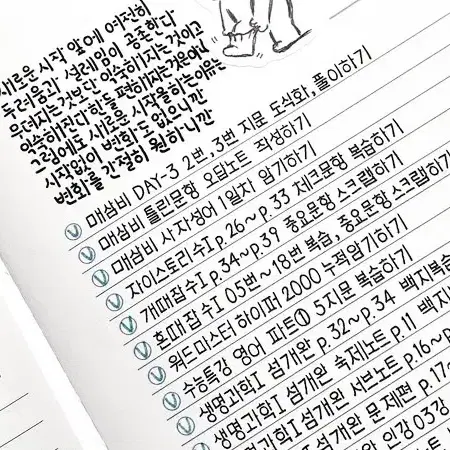 새로운 시작 앞에 여전히
두려움과 설레임이 공존한다
무뎌지는것보단 익숙해지는 것이고
익숙해진다 한들 편해지는것은아닌
그럼에도 새로운 시작을하는이유는
시작없이 변화도 없으니까
변화를 간절히 원하니까
매삼비 DAY-3 2번, 3번 지문 도식화, 풀이하기
매삼비 틀린문항 오답노트 작성하기
매삼비 사자성어 1일지 암기하기
자이스토리 수I p.26~p.33 체크문항 복습하기
개때잡 수I p.34~p.39 중요문항 스크랩하기
혼때잡 수I 05번~18번 복습, 중요문항 스크랩하기
워드마스터 하이퍼 2000 누적암기하기
수능특강 영어 파트① 5지문 복습하기
생명과학I 섬개완 p.32~p.34 백지복습
생명과학I 섬개완 속제노트 p.11 백지
생명과학I 섬개완 서브노트 p.16~p
섬개완 문제편 p.17~
인강 03강